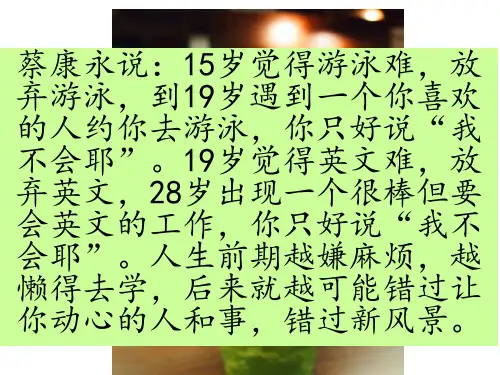 蔡康永说：15岁觉得游泳难，放
弃游泳，到19岁遇到一个你喜欢
的人约你去游泳，你只好说“我
不会耶”。19岁觉得英文难，放
弃英文，28岁出现一个很棒但要
会英文的工作，你只好说“我不
会耶”。人生前期越嫌麻烦，越
懒得去学，后来就越可能错过让
你动心的人和事，错过新风景。